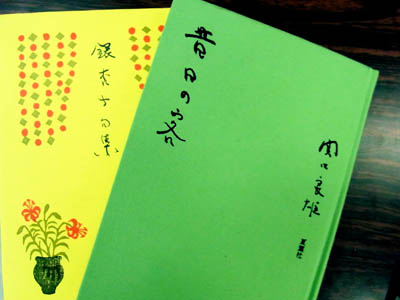 銀杏子句集
昔日の客
関口良雄
夏葉社